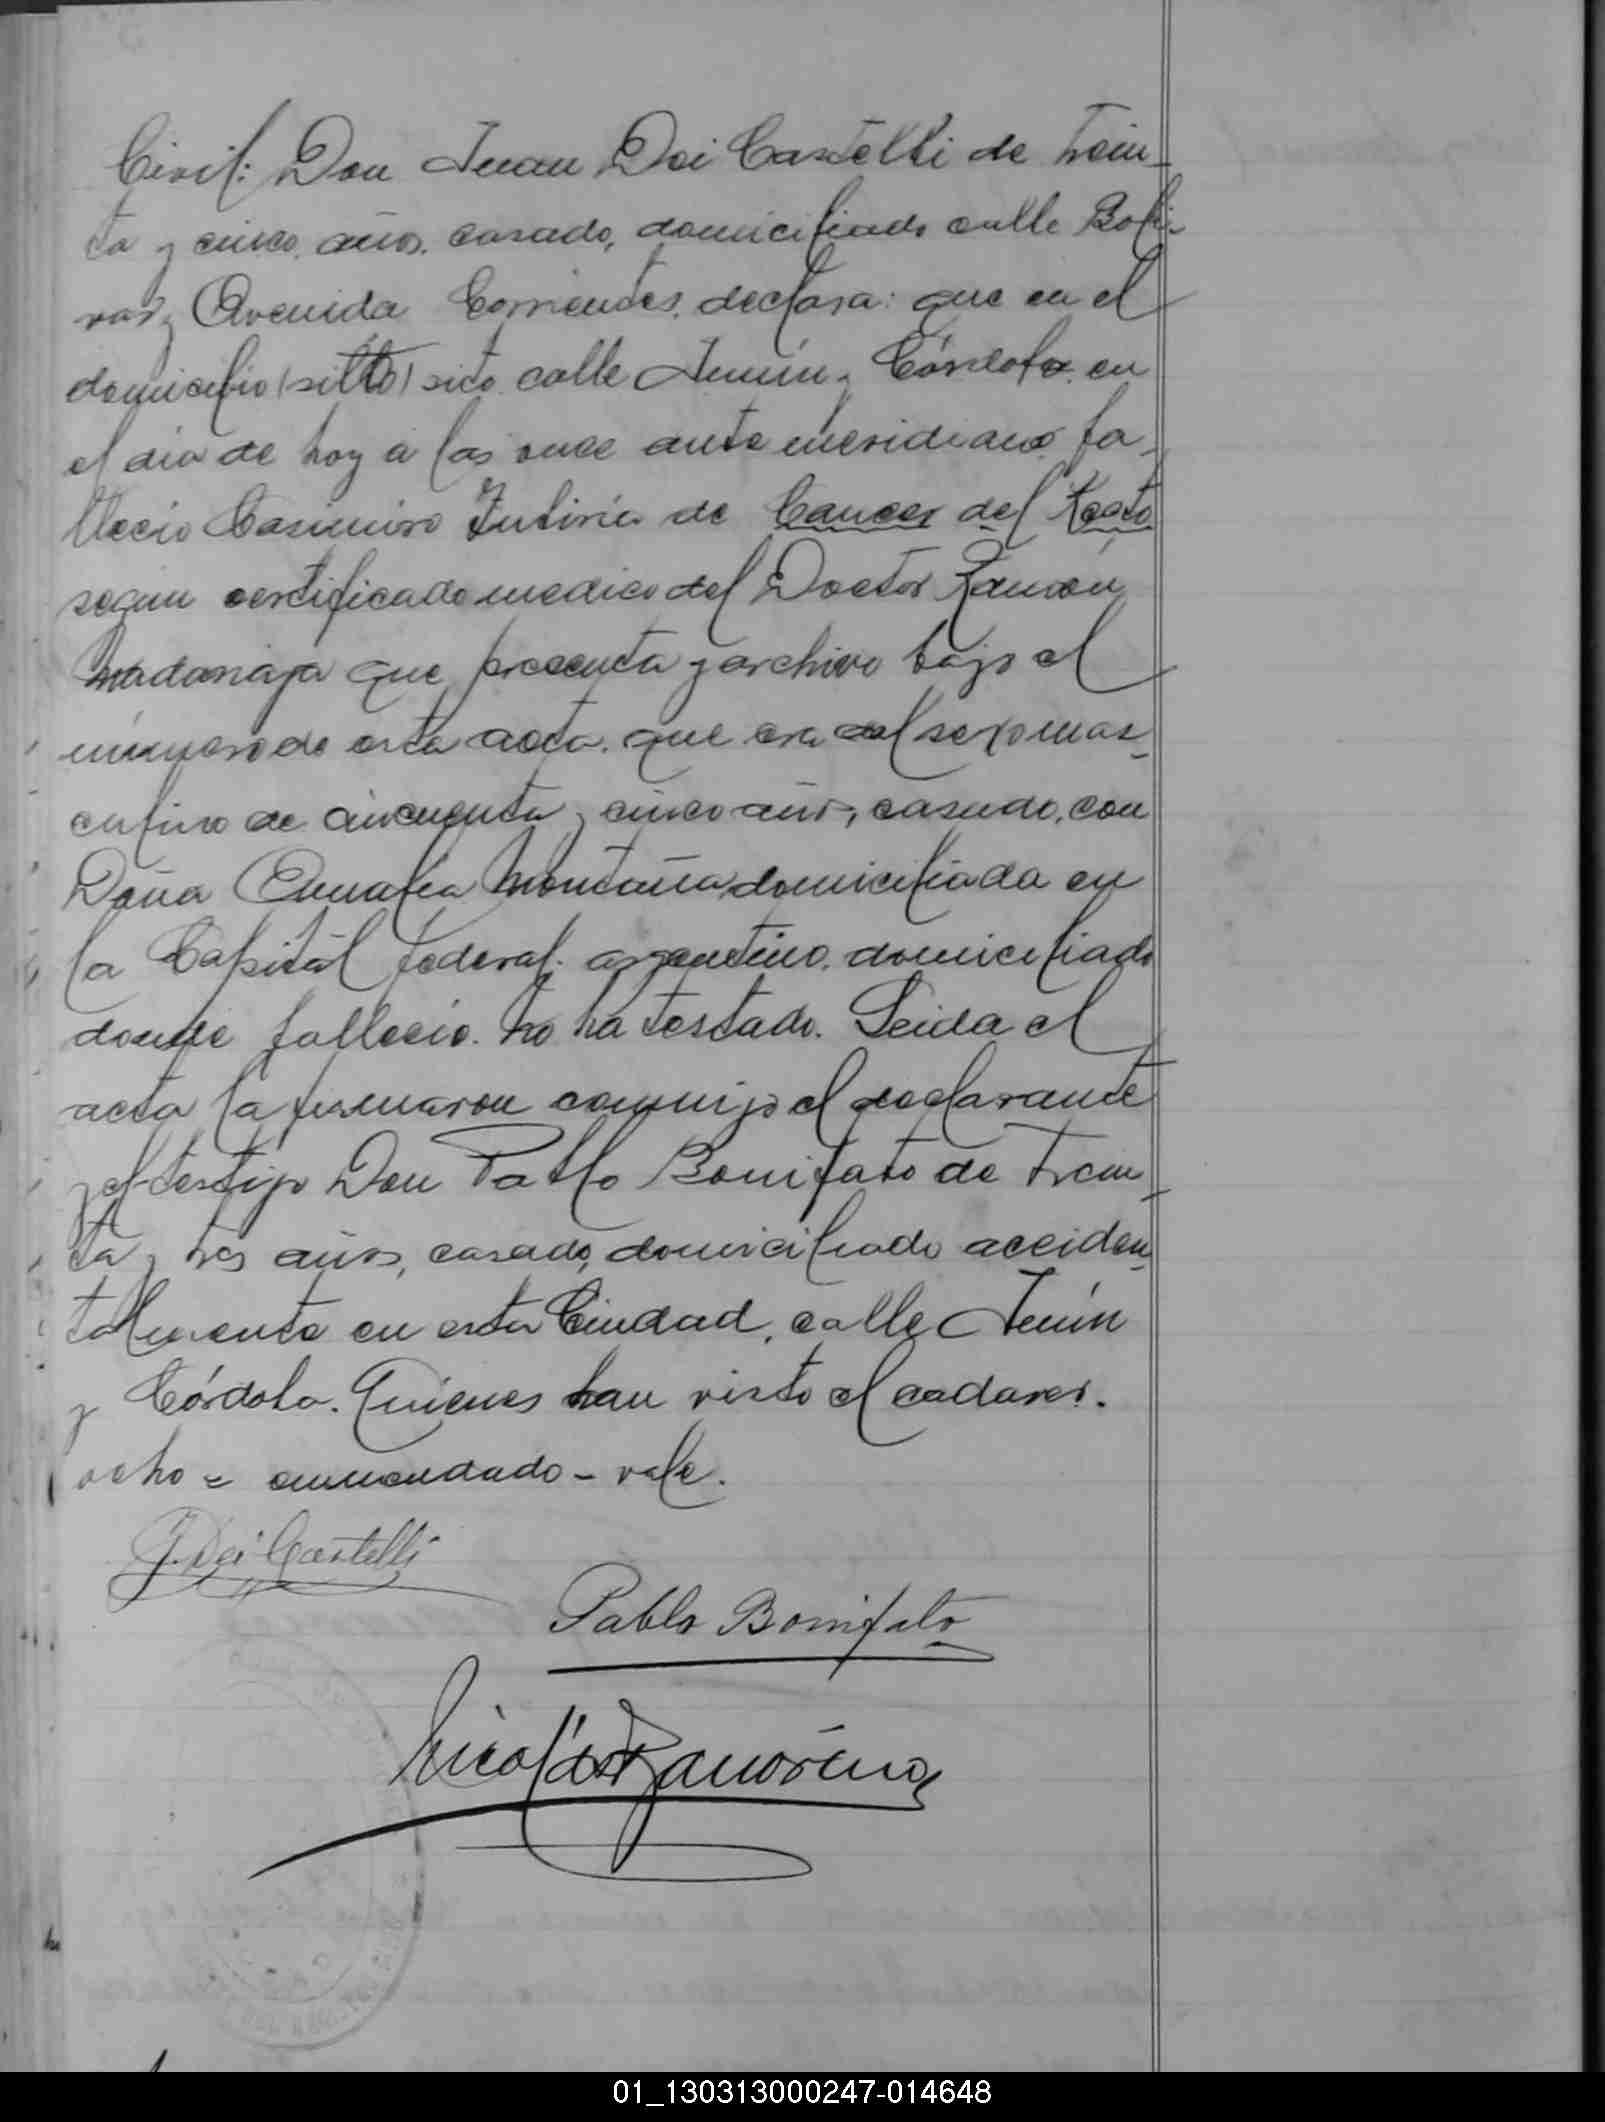 Civil: Don Juan Dei Castelli de trein-
ta y cinco años, casado, domiciliado calle Boli-
var y Avenida Corrientes, declara: que en el
domicilio (sitto) sito calle Junín y Córdoba, en
el dia de hoy a las once ante meridiano fa-
llecio Casimiro de Cancer del Recto
segun certificado medico del Doctor Ramón
Madariaga que presenta y archivo bajo el
número de esta acta. que era del sexo mas-
culino de cincuenta y cinco años, casado, con
Doña Amalia Montaña domiciliada en
la Capital federal. argentino. domiciliado
donde fallecio. No ha testado. Leida el
acta la firmaron conmigo el declarante
y el testigo Don Pablo Bonifato de trein-
ta y tres años, casado, domiciliado acciden-
talmente en esta Ciudad, calle Junín
y Córdoba. Quienes han visto el cadaver.
ocho = enmendado - vale.
J. Dei Castelli
Pablo Bonifato
Nicolás
01_130313000247-014648